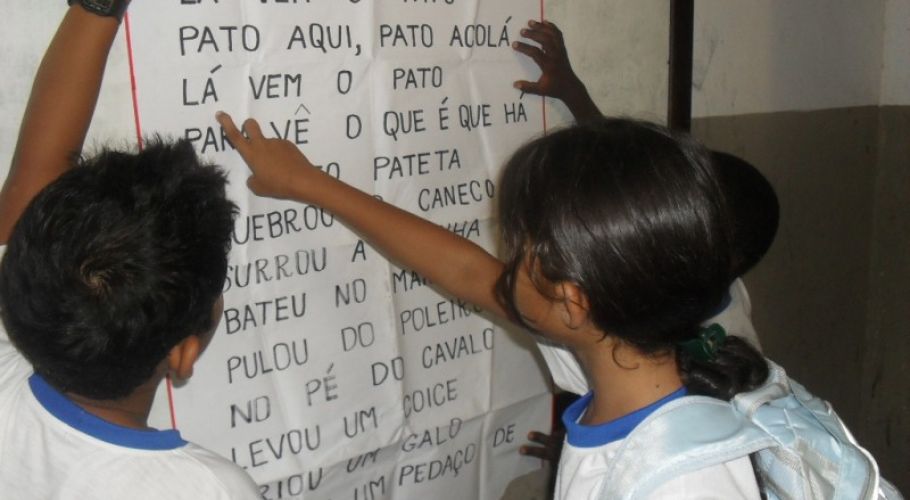 LÁ VEM O PATO
PATO AQUI, PATO ACOLÁ
LÁ VEM O PATO
PARA VÊ O QUE É QUE HÁ
PATETA
CANECO
SURROU A
BATEU NO
PULOU DO POLEIRO
NO PÉ DO CAVALO
LEVOU UM COICE
UM GALO
UM PEDAÇO DE